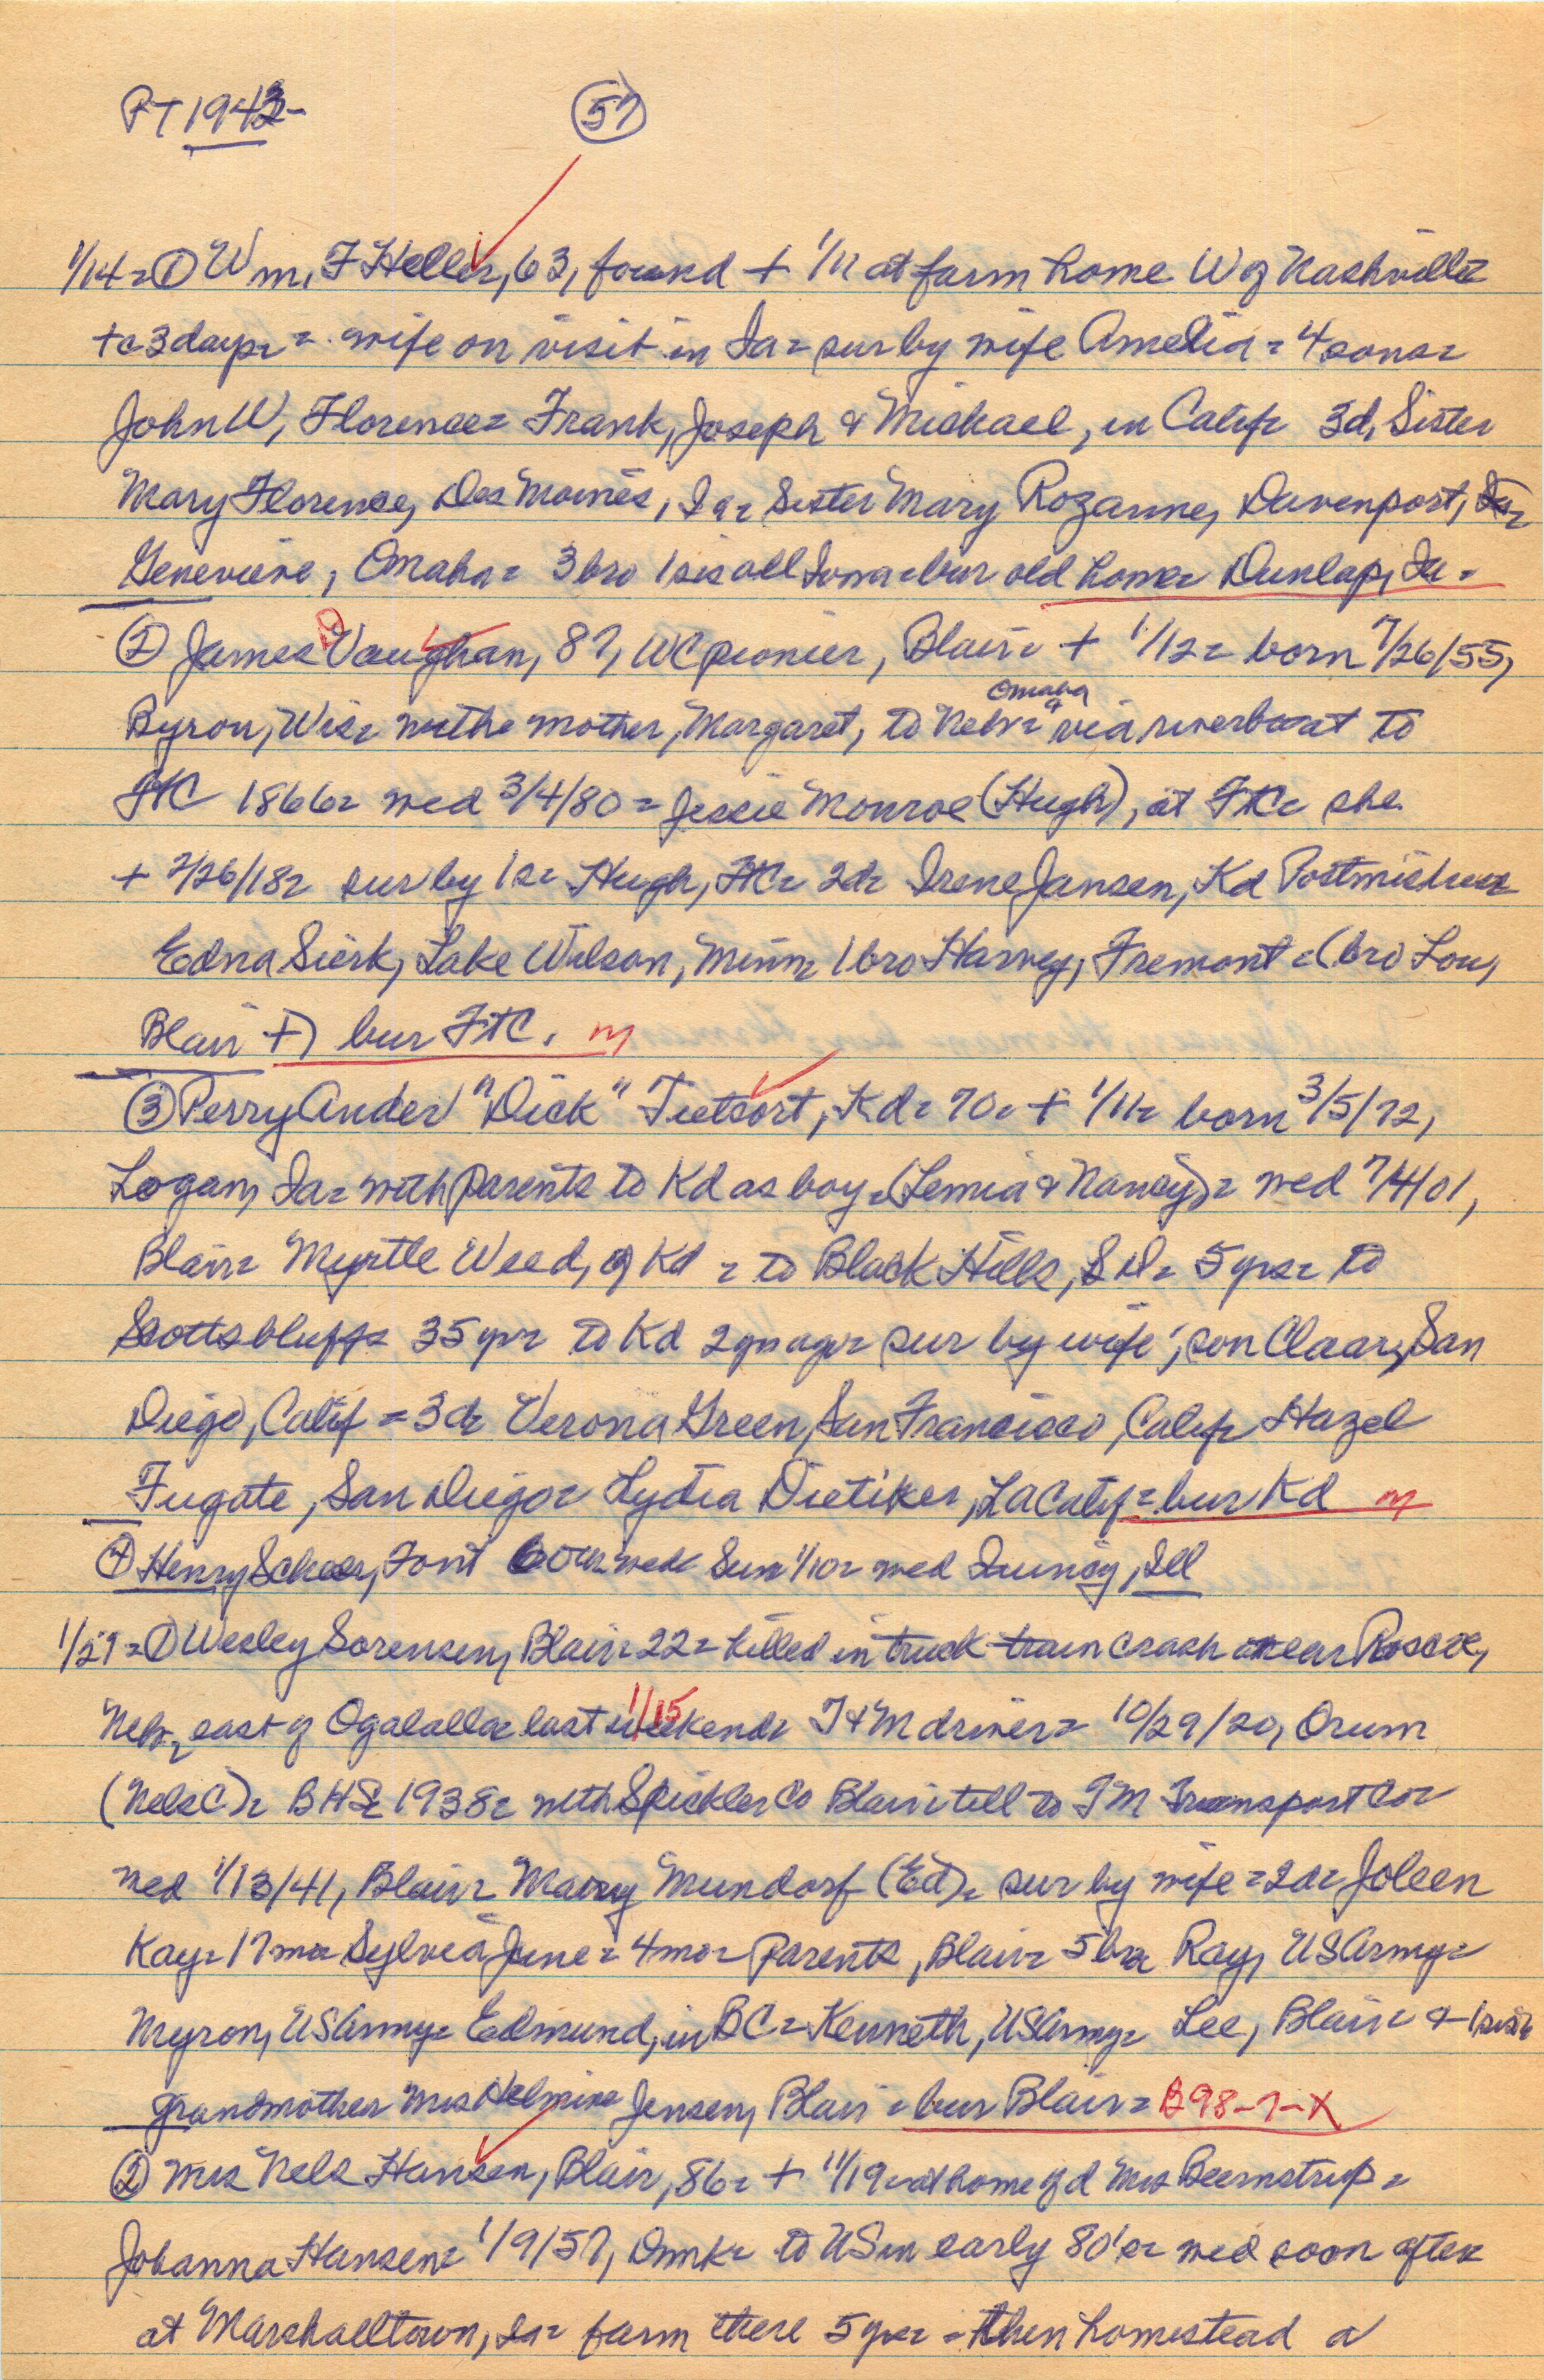 PT 1943-
57
1/14 = ① Wm. F Heller, 63, found + 1/11 at farm home W of Nashville =
+ c 3 days = wife on visit in Ia = sur by wife Amelia = 4 sons =
John W, Florence = Frank, Joseph & Michael, in Calif = 3d, Sister
Mary Florence, Des Moines, Ia = Sister Mary Rozanne, Davenport, Ia =
Genevieve, Omaha = 3 bro 1 sis all Iowa = bur old home = Dunlap, Ia =
② James Vaughan, 87, WC pioneer, Blair = + 1/12 = born 7/26/55,
Omaha
Byron, Wis = with mother, Margaret, to Neb = via riverboat to
FtC 1866 = wed 3/4/80 = Jessie Monroe (Hugh), at FtC = she
+ 2/26/18 = sur by 1s = Hugh, FtC = 2d = Irene Jansen, Kd Postmistress
Edna Sierk, Lake Wilson, Minn = 1 bro Harvey, Fremont = (bro Lou,
Blair +) bur FtC. m
③ Perry Ander "Dick" Tietsort, Kd = 70 = + 1/11 = born 3/5/72,
Logan, Ia = with parents to Kd as boy = (Lemia & Nancy) = wed 7/4/01,
Blair = Myrtle Weed, of Kd = to Black Hills, SD = 5 yrs = to
Scottsbluff = 35 yr = to Kd 2 yr ago = sur by wife, son Claar, San
Diego, Calif = 3d = Verona Green, San Francisco, Calif = Hazel
Fugate, San Diego = Lydia Dietiker, LA Calif = bur Kd m
④ Henry Scheer, Font wed Sun 1/10 = wed Ill
1/21 = ① Wesley Sorensen, Blair = 22 = killed in truck-train crash near Roscoe,
1/15
Neb, east of Ogalalla = last weekend = I & M driver = 10/29/20, Orum
(Nels C) = BHS = 1938 = with Spickler Co Blair = till to IM Transport Co =
wed 1/13/41, Blair = Mary Mundorf (Ed) = sur by wife = 2d = Joleen
Kay = 17 mo = Sylvia June = 4 mo = parents, Blair = 5 bro Ray, US Army =
Myron, US Army = Edmund, in BC = Kenneth, US Army = Lee, Blair = & 1 sis =
grandmother Mrs Helmine Jensen, Blair = bur Blair = B98-7-X
② Mrs Nels Hansen, Blair, 86 = + 11/19 = at home of d Mrs Beernstrup =
Johanna Hansen = 1/9/57, Dnmk = to US in early 80's = wed soon after
at Marshalltown, Ia = farm there 5 yrs = then homestead a